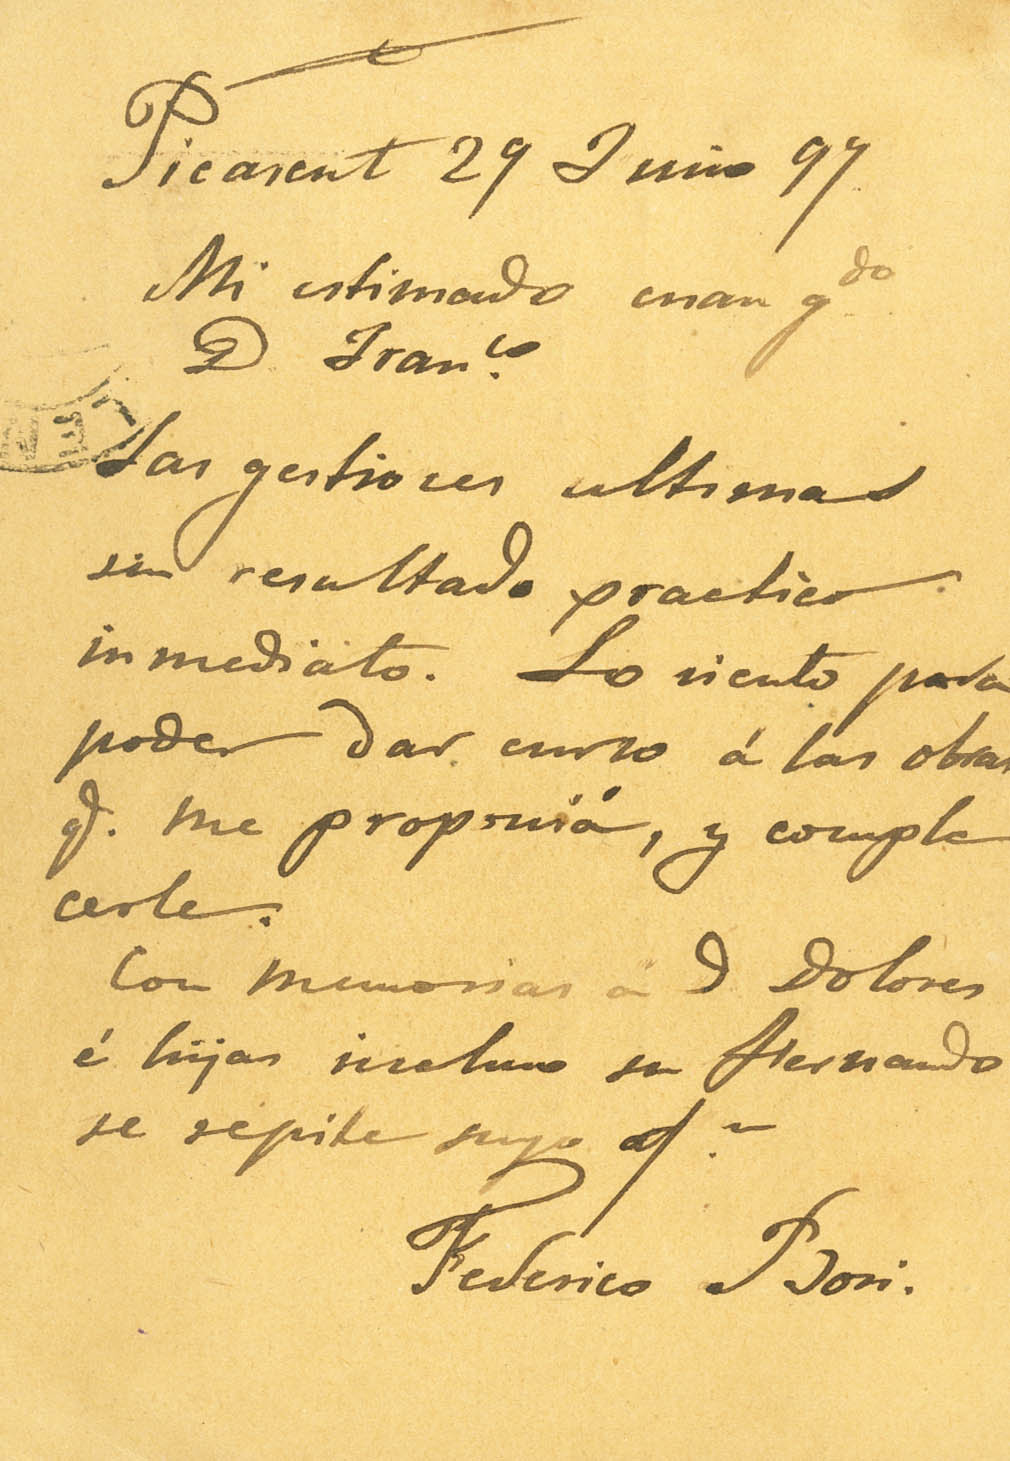 Picasent 29 Junio 97
Mi estimado
D. Fran.co
Las gestiones ultimas
sin resultado practico
inmediato. Lo siento para
poder dar curso á las obras
q. me proponiá, y compla
cerle.
Con memorias a D Dolores
é hijas incluso su Hernando
se repite suyo af.
Federico Bori.